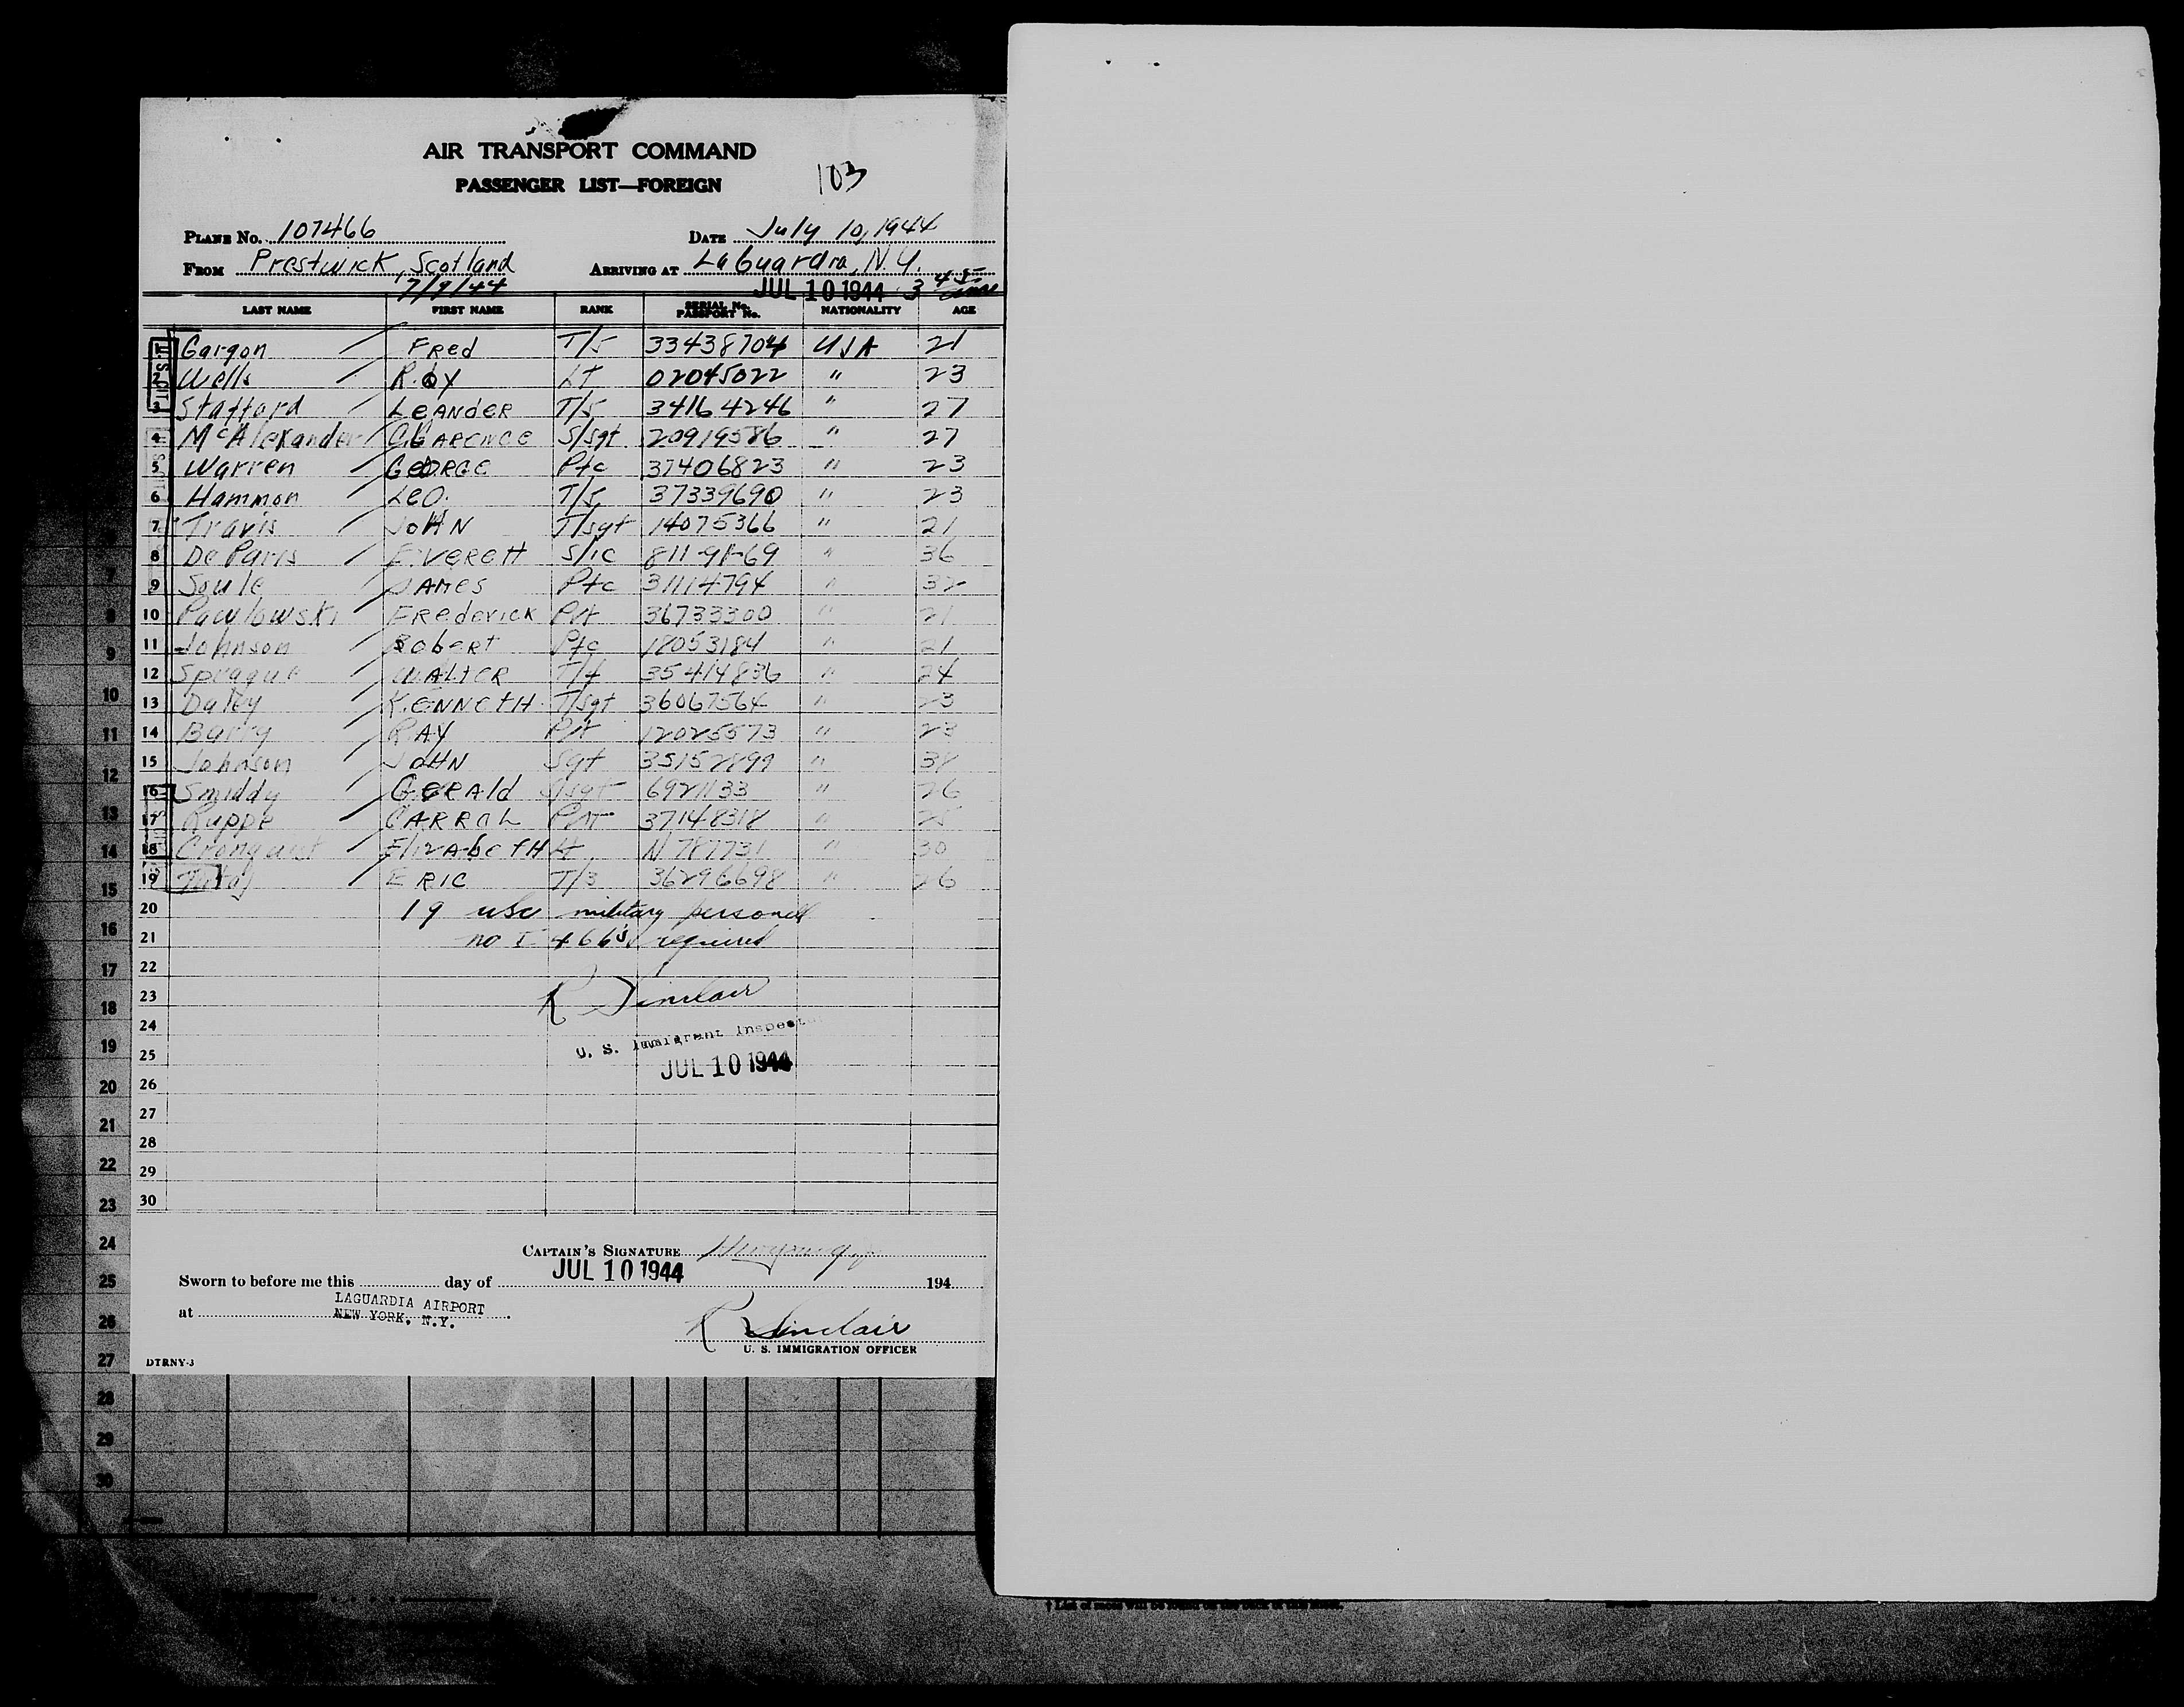 AIR TRANSPORT COMMAND
PASSENGER LIST—FOREIGN
103
PLANE No. 107466 DATE July 10, 1944
FROM Prestwick, Scotland ARRIVING AT LaGuardia, N.Y.
7/9/44 JUL 10 1944 3 45
LAST NAME FIRST NAME RANK SERIAL No. PASSPORT No. NATIONALITY AGE
1 Gargon Fred T/5 33438704 USA 21
2 Wells Roy Lt 02045022 " 23
3 Stafford Leander T/5 34164246 " 27
4 McAlexander Clarence S/sgt 20919586 " 27
5 Warren George Pfc 37406823 " 23
6 Hammon Leo T/5 37339690 " 23
7 Travis John T/sgt 14075366 " 21
8 DeParis Everett S/1c 811-91-69 " 36
9 Soule James Pfc 31114794 " 32
10 Pawlowski Frederick Pvt 36733300 " 21
11 Johnson Robert Pfc 18053184 " 21
12 Sprague Walter T/4 35414836 " 24
13 Daley Kenneth T/sgt 36067564 " 23
14 Barry Ray Pvt 12025573 " 23
15 Johnson John Sgt 35152899 " 38
16 Smiddy Gerald S/sgt 6921133 " 26
17 Ruppe Carrol Pvt 37148318 " 25
18 Cronquist Elizabeth Lt N 787731 " 30
19 Eric T/3 36296698 " 26
20 19 usc military personell
21 no I 466's required
22
23 R Sinclair
24 U. S. Immigrant Inspector
25 JUL 10 1944
26
27
28
29
30
CAPTAIN'S SIGNATURE
Sworn to before me this day of JUL 10 1944 194
at LAGUARDIA AIRPORT
NEW YORK, N.Y.
R Sinclair
U. S. IMMIGRATION OFFICER
DTRNY-3
7
8
9
10
11
12
13
14
15
16
17
18
19
20
21
22
23
24
25
26
27
28
29
30